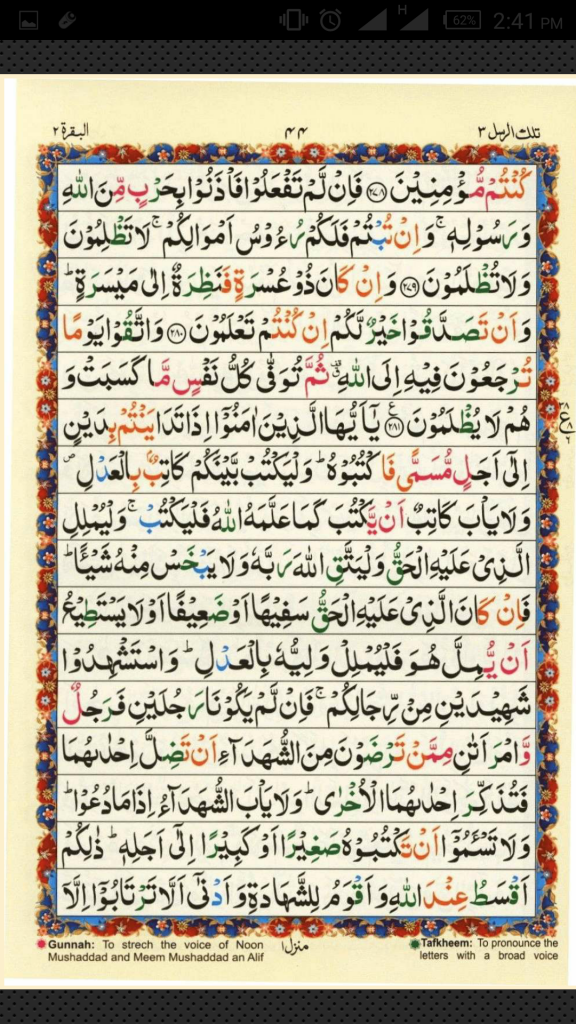 H 62% 2:41 PM
تلك الرسل ٣ ٤٤ البقرة ٢
كُنْتُمْ مُّؤْمِنِيْنَ ﴿٢٧٨﴾ فَاِنْ لَّمْ تَفْعَلُوْا فَاْذَنُوْا بِحَرْبٍ مِّنَ اللّٰهِ
وَرَسُوْلِهٖ ۚ وَاِنْ تُبْتُمْ فَلَكُمْ رُءُوْسُ اَمْوَالِكُمْ ۚ لَا تَظْلِمُوْنَ
وَلَا تُظْلَمُوْنَ ﴿٢٧٩﴾ وَاِنْ كَانَ ذُوْ عُسْرَةٍ فَنَظِرَةٌ اِلٰى مَيْسَرَةٍ ؕ
وَاَنْ تَصَدَّقُوْا خَيْرٌ لَّكُمْ اِنْ كُنْتُمْ تَعْلَمُوْنَ ﴿٢٨٠﴾ وَاتَّقُوْا يَوْمًا
تُرْجَعُوْنَ فِيْهِ اِلَى اللّٰهِ ۗ ثُمَّ تُوَفّٰى كُلُّ نَفْسٍ مَّا كَسَبَتْ وَ
هُمْ لَا يُظْلَمُوْنَ ﴿٢٨١﴾ يٰۤاَيُّهَا الَّذِيْنَ اٰمَنُوْۤا اِذَا تَدَايَنْتُمْ بِدَيْنٍ
اِلٰۤى اَجَلٍ مُّسَمًّى فَاكْتُبُوْهُ ؕ وَلْيَكْتُبْ بَّيْنَكُمْ كَاتِبٌۢ بِالْعَدْلِ ۪
وَلَا يَاْبَ كَاتِبٌ اَنْ يَّكْتُبَ كَمَا عَلَّمَهُ اللّٰهُ فَلْيَكْتُبْ ۚ وَلْيُمْلِلِ
الَّذِيْ عَلَيْهِ الْحَقُّ وَلْيَتَّقِ اللّٰهَ رَبَّهٗ وَلَا يَبْخَسْ مِنْهُ شَيْـًٔا ؕ
فَاِنْ كَانَ الَّذِيْ عَلَيْهِ الْحَقُّ سَفِيْهًا اَوْ ضَعِيْفًا اَوْ لَا يَسْتَطِيْعُ
اَنْ يُّمِلَّ هُوَ فَلْيُمْلِلْ وَلِيُّهٗ بِالْعَدْلِ ؕ وَاسْتَشْهِدُوْا
شَهِيْدَيْنِ مِنْ رِّجَالِكُمْ ۚ فَاِنْ لَّمْ يَكُوْنَا رَجُلَيْنِ فَرَجُلٌ
وَّامْرَاَتٰنِ مِمَّنْ تَرْضَوْنَ مِنَ الشُّهَدَآءِ اَنْ تَضِلَّ اِحْدٰىهُمَا
فَتُذَكِّرَ اِحْدٰىهُمَا الْاُخْرٰى ؕ وَلَا يَاْبَ الشُّهَدَآءُ اِذَا مَا دُعُوْا ؕ
وَلَا تَسْـَٔمُوْۤا اَنْ تَكْتُبُوْهُ صَغِيْرًا اَوْ كَبِيْرًا اِلٰۤى اَجَلِهٖ ؕ ذٰلِكُمْ
اَقْسَطُ عِنْدَ اللّٰهِ وَاَقْوَمُ لِلشَّهَادَةِ وَاَدْنٰۤى اَلَّا تَرْتَابُوْۤا اِلَّاۤ
Gunnah: To strech the voice of Noon
Mushaddad and Meem Mushaddad an Alif
منزل ١
Tafkheem: To pronounce the
letters with a broad voice